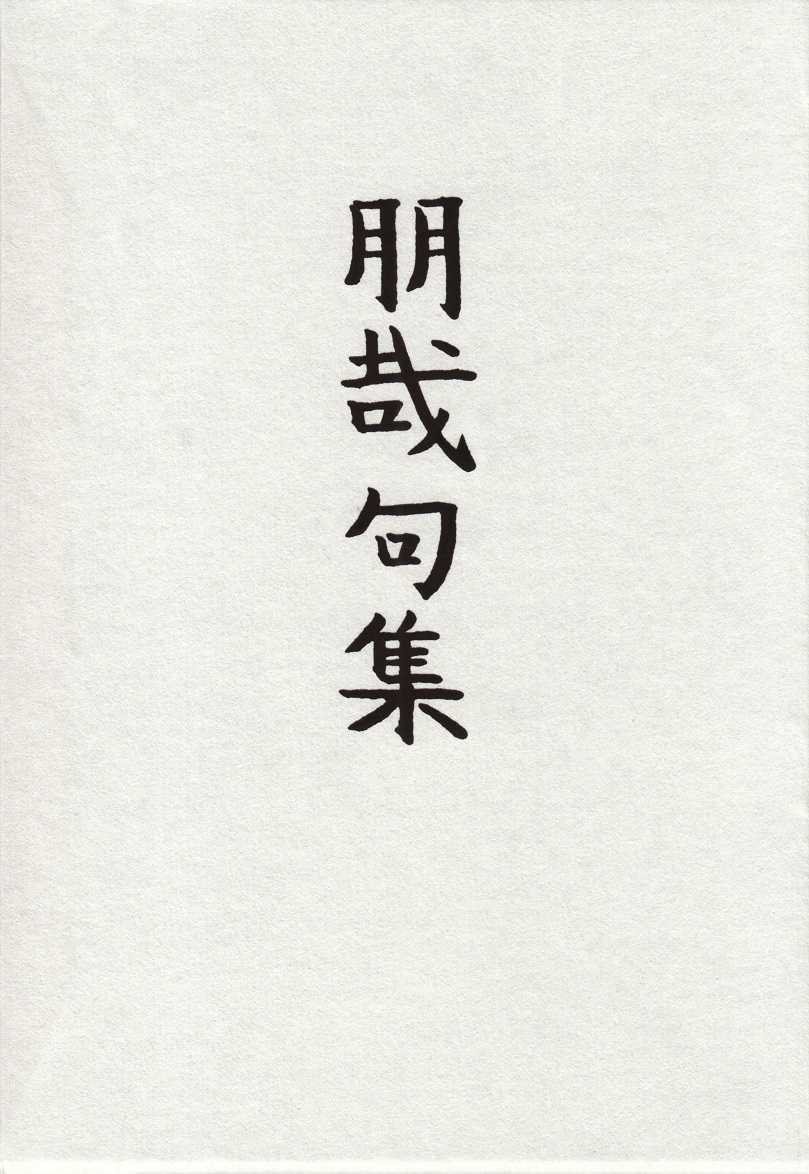 朋哉句集